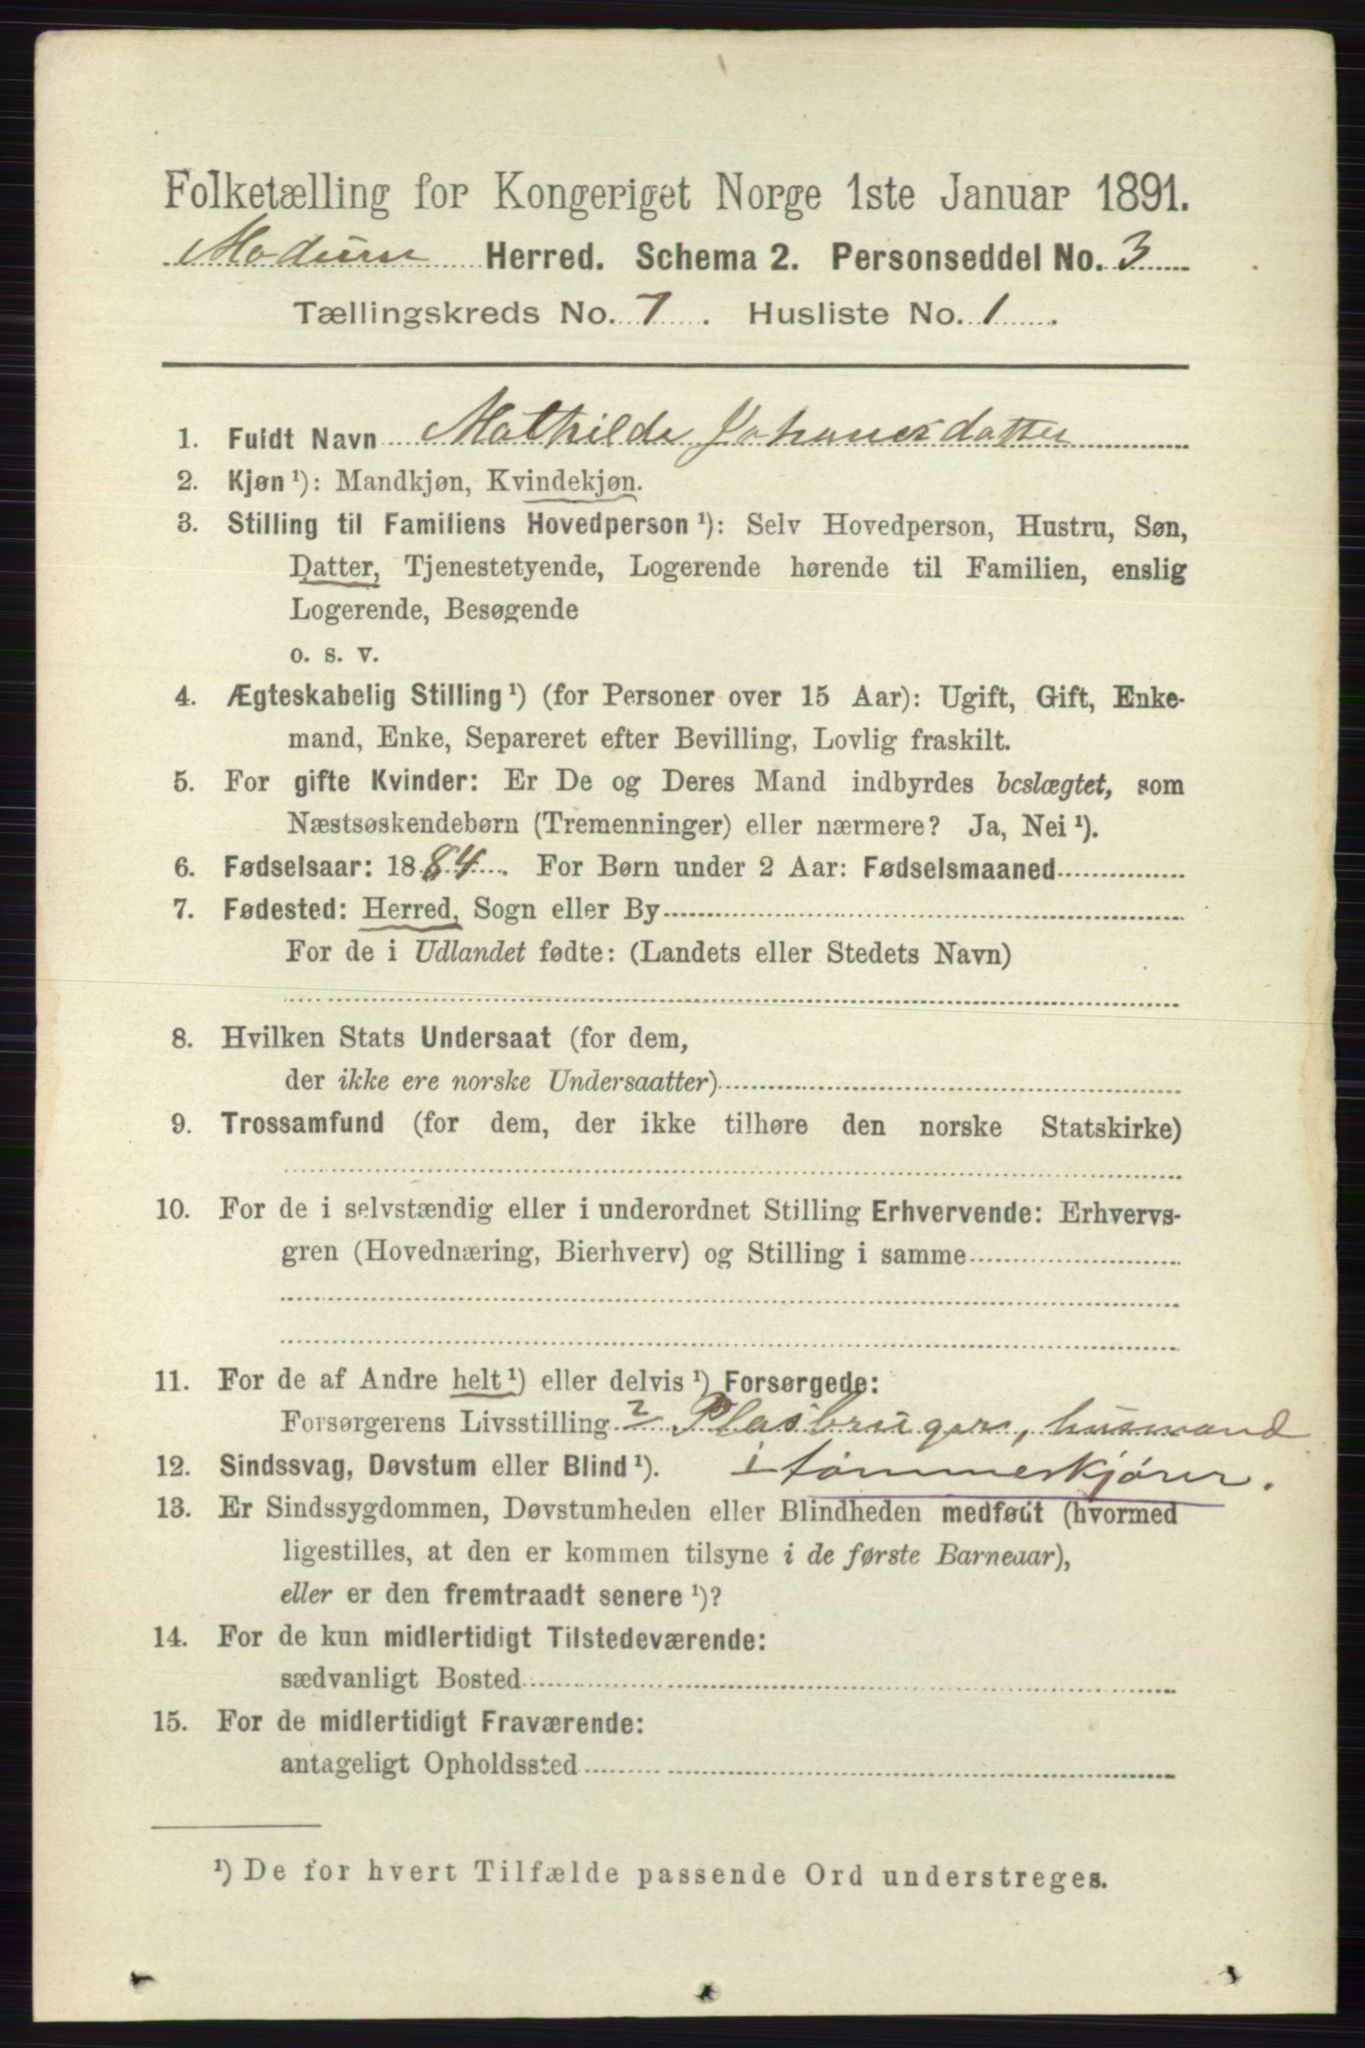 Folketælling for Kongeriget Norge 1ste Januar 1891.
Modum Herred. Schema 2. Personseddel No. 3
Tællingskreds No. 7. Husliste No. 1.
1. Fuldt Navn Mathilde Johanesdatter
2. Kjøn ¹): Mandkjøn, Kvindekjøn.
3. Stilling til Familiens Hovedperson ¹): Selv Hovedperson, Hustru, Søn,
Datter, Tjenestetyende, Logerende hørende til Familien, enslig
Logerende, Besøgende
o. s. v.
4. Ægteskabelig Stilling ¹) (for Personer over 15 Aar): Ugift, Gift, Enke-
mand, Enke, Separeret efter Bevilling, Lovlig fraskilt.
5. For gifte Kvinder: Er De og Deres Mand indbyrdes beslægtet, som
Næstsøskendebørn (Tremenninger) eller nærmere? Ja, Nei ¹).
6. Fødselsaar: 1884. For Børn under 2 Aar: Fødselsmaaned
7. Fødested: Herred, Sogn eller By
For de i Udlandet fødte: (Landets eller Stedets Navn)
8. Hvilken Stats Undersaat (for dem,
der ikke ere norske Undersaatter)
9. Trossamfund (for dem, der ikke tilhøre den norske Statskirke)
10. For de i selvstændig eller i underordnet Stilling Erhvervende: Erhvervs-
gren (Hovednæring, Bierhverv) og Stilling i samme
11. For de af Andre helt ¹) eller delvis ¹) Forsørgede:
Forsørgerens Livsstilling Plasbruger, husmand
12. Sindssvag, Døvstum eller Blind ¹). i tømmerkjører.
13. Er Sindssygdommen, Døvstumheden eller Blindheden medfødt (hvormed
ligestilles, at den er kommen tilsyne i de første Barneaar),
eller er den fremtraadt senere ¹)?
14. For de kun midlertidigt Tilstedeværende:
sædvanligt Bosted
15. For de midlertidigt Fraværende:
antageligt Opholdssted
¹) De for hvert Tilfælde passende Ord understreges.